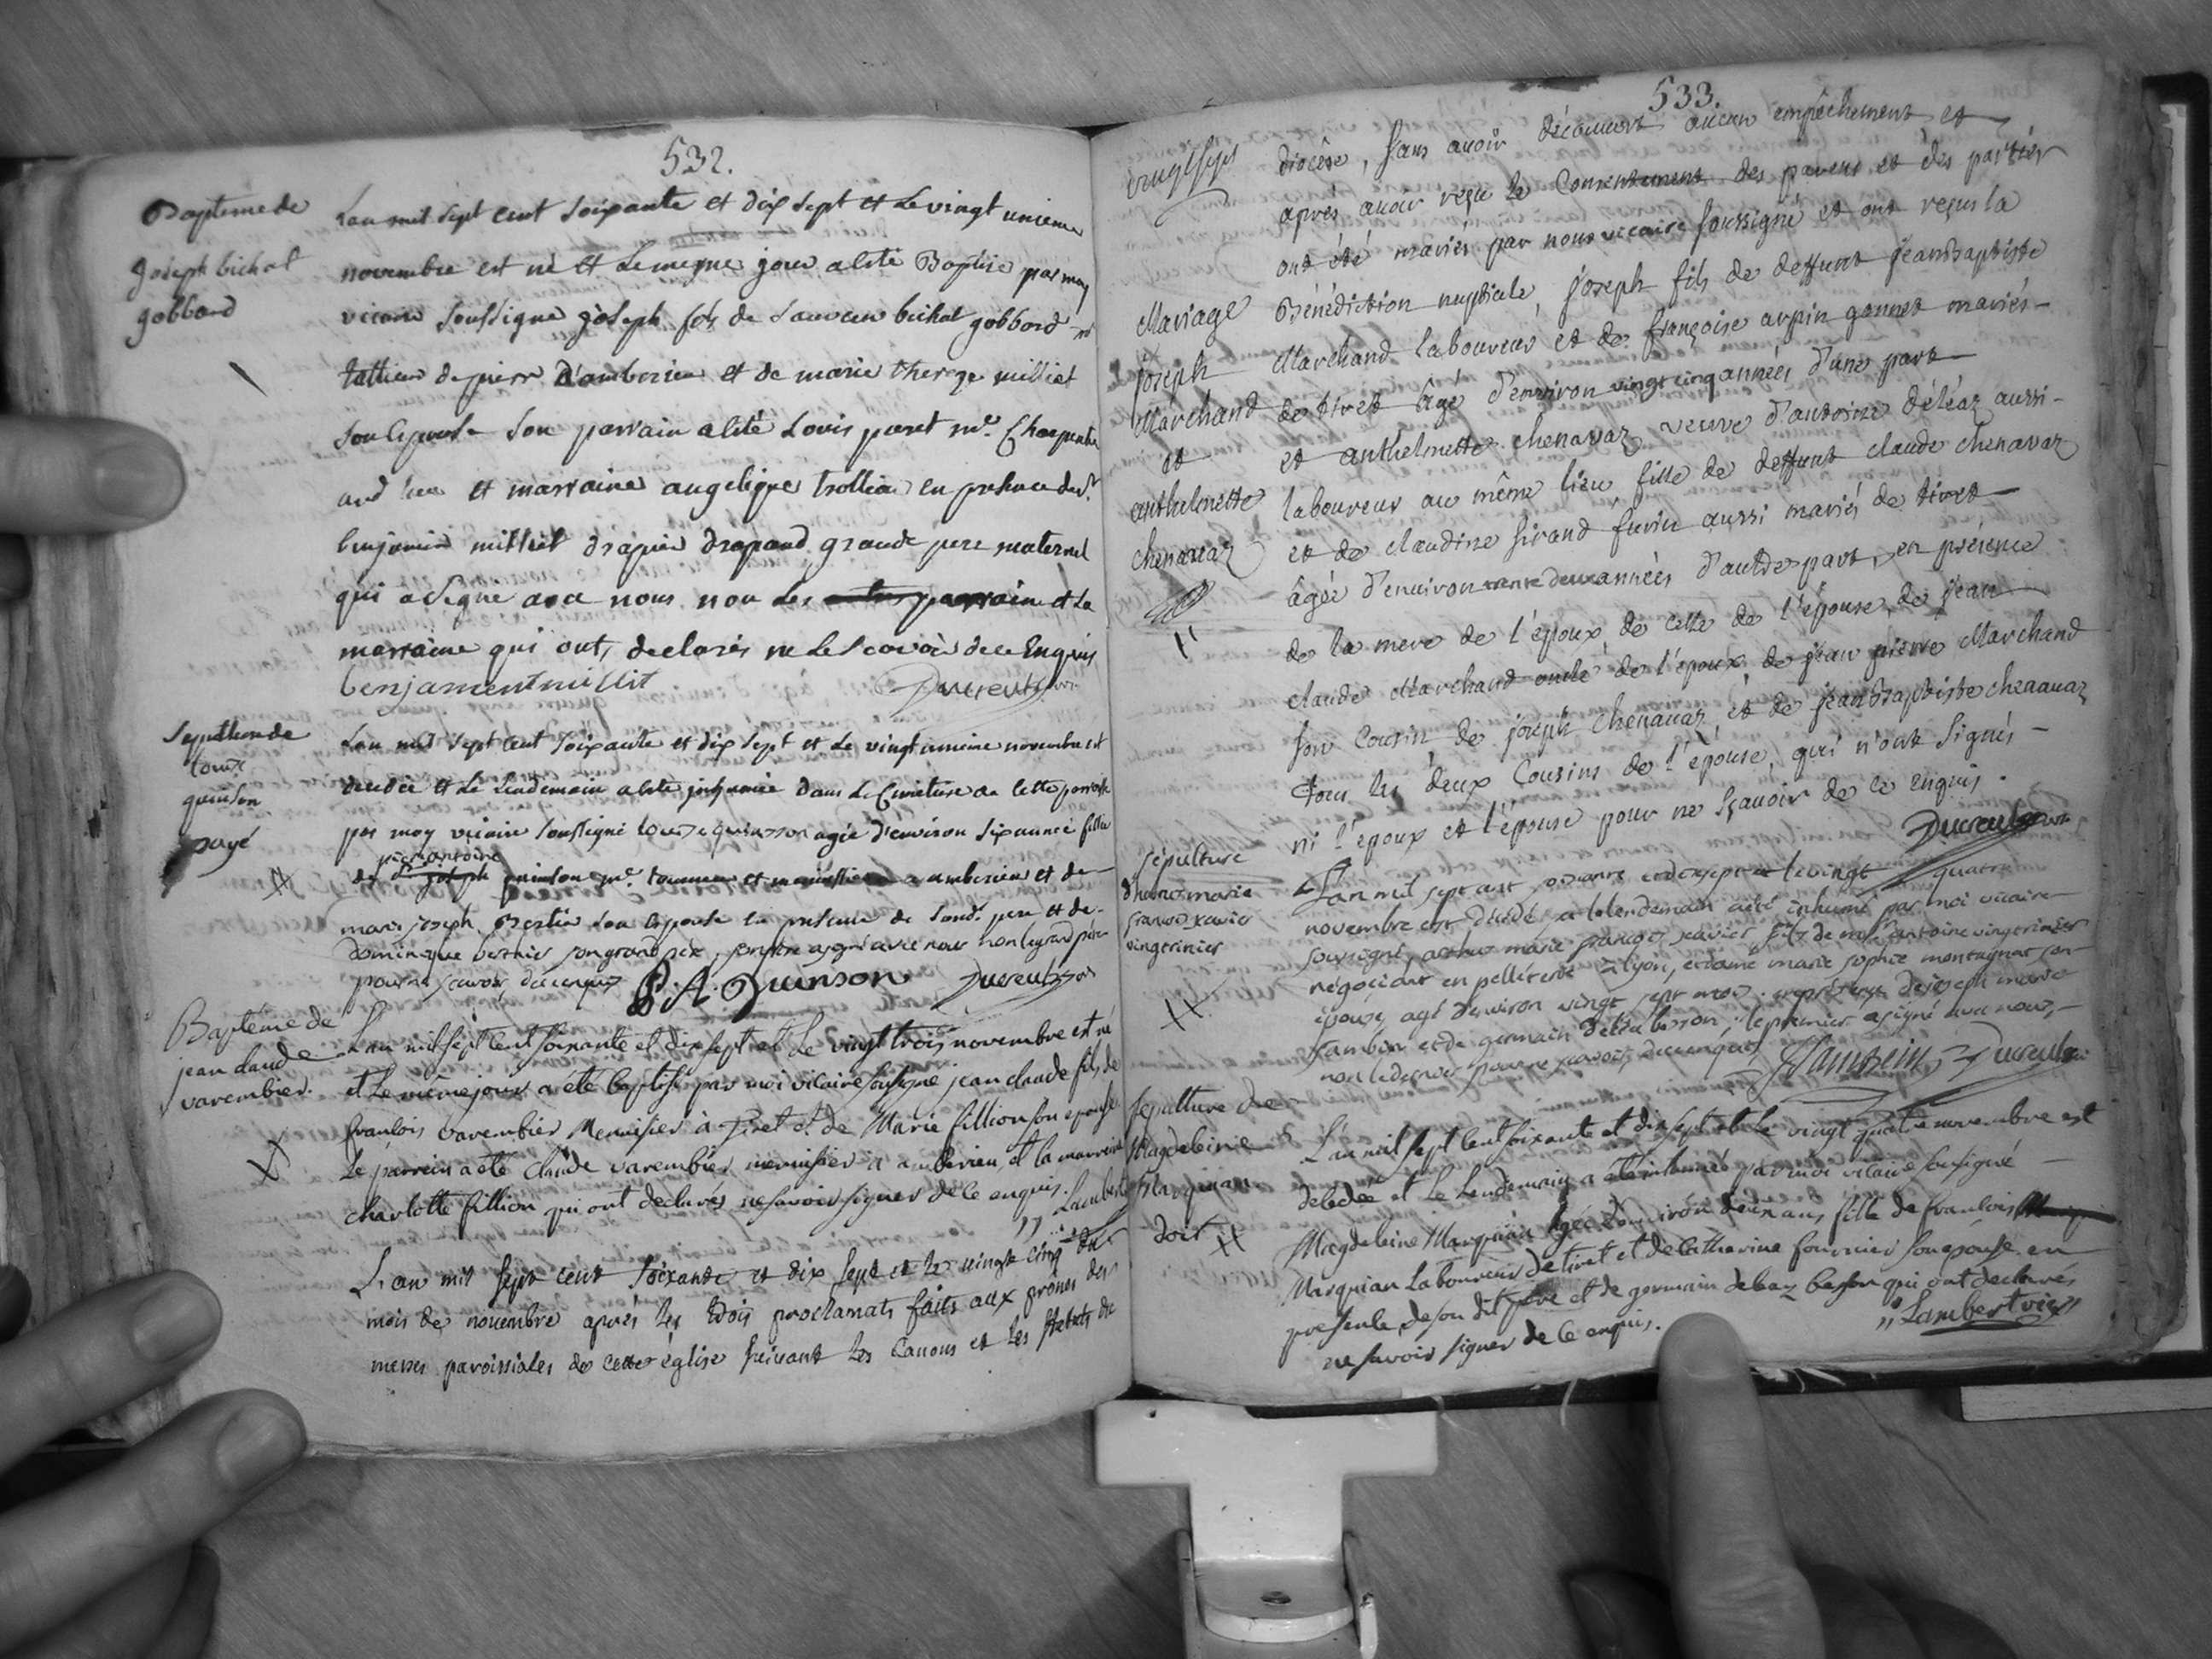 532.
Bapteme de
Joseph bichat
gobbard
Lan mil sept cent soixante et dix sept et le vingt unieme
novembre est né et le meme jour a eté Baptisé par moy
vicaire soussigne joseph fils de bichat gobbord
tallieur de pierr d'amberieu et de marie thereze milliet
son epouse son parrain a eté Louis puret me. Charpentie
aud lieu et marraine angelique trollia en presence de sr.
benjamin milliet drapier drapaud grand pere maternel
qui a signe avec nous non les parrain et la
marraine qui onts declarés ne le scavoir de ce Enquis
benjamentmillit Ducreux vic.
Sepulture de
Louise
quinson
payé
Lan mil sept cent soixante et dix sept et le vingt unieme novembre est
decedée et le lendemain a eté inhumée dans le Cimetiere de cette paroisse
par moy vicaire soussigné Louise quinson agée d'environ six année fillie
de pierre antoine quinson me. tourneur et a amberieu et de
marie joseph Bertier son epouse en presence de sond. pere et de
dominique bernier son grand pere, son pere a signé avec nous non le grand pere
pour ne scavoir de ce enquis P. A. Quinson Ducreux vic.
Baptême de
jean claude
varembier.
L'an mil sept cent soixante et dix sept et Le vingt trois novembre est né
et Le même jour a eté baptisé par moi vicaire sousigné jean claude fils de
francois varembier Menuisier à Tiret et de Marie fillion son epouse
Le parrein a eté Claude varembier menuisier a amberieu et la marreine
charlotte fillion qui ont declarés ne savoir signer de ce enquis. Lambert
vic
L'an mil sept cent soixante et dix sept et le vingt cinq du
mois de novembre après les trois proclamats faits aux prônes des
messes paroissiales de cette église suivant les Canons et les statuts du
533.
vingt sept
diocèse, sans avoir découvert aucun empêchement et
après avoir reçu le Consentement des parens et des parties
ont été mariés par nous vicaire soussigné et ont reçus la
Mariage
joseph
Marchand
et
anthelmette
chenavaz
Bénédiction nuptiale, joseph fils de deffunt jeanBaptiste
Marchand laboureur et de françoise arpin gonnet mariés
de tiret âgé d'environ vingt cinq années d'une part
et anthelmette chenavaz veuve d'antoine déléaz aussi
laboureur au même lieu fille de deffunt claude chenavaz
et de claudine sirand furin aussi mariés de tiret
âgée d'environ trente deux années d'autre part, en présence
de la mere de l'epoux de celle de l'épouse, de jean
claude Marchand oncle de l'époux de jean pierre Marchand
son Cousin de joseph chenavaz et de jeanBaptiste chenavaz
tous les deux Cousins de l'épouse, qui n'ont signés
ni l'epoux et l'épouse pour ne sçavoir de ce enquis.
Ducreux vic.
sépulture
marie
françois xavier
vingtrinier
L'an mil sept cent soixante et dix sept et le vingt quatre
novembre est décédé et le lendemain a été inhumé par moi vicaire
soussigné, marie françois xavier fils de antoine vingtrinier
négociant en pelleterie à lyon, et dame marie sophie montagnat son
épouse, agé d'environ vingt sept mois. en présence de joseph marie
Janbin et de germain Debaz besson, le premier a signé avec nous,
non le dernier pour ne scavoir de ce enquis Ducreux vic.
sepulture de
Magdeleine
Marquian
doit
L'an mil sept cent soixante et dix sept et le vingt quatre novembre est
decedée et Le Lendemain a eté inhumée par moi vicaire sousigné
Magdeleine Marquian agée d'environ deux ans, fille de francois
Marquian Laboureur de tiret et de Catherine fournier son epouse en
presence de son dit pere et de germain debaz besson qui ont declarés
ne savoir signer de ce enquis. Lambert vic